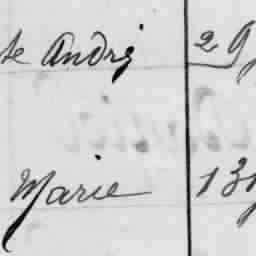 te André 29
Marie 131